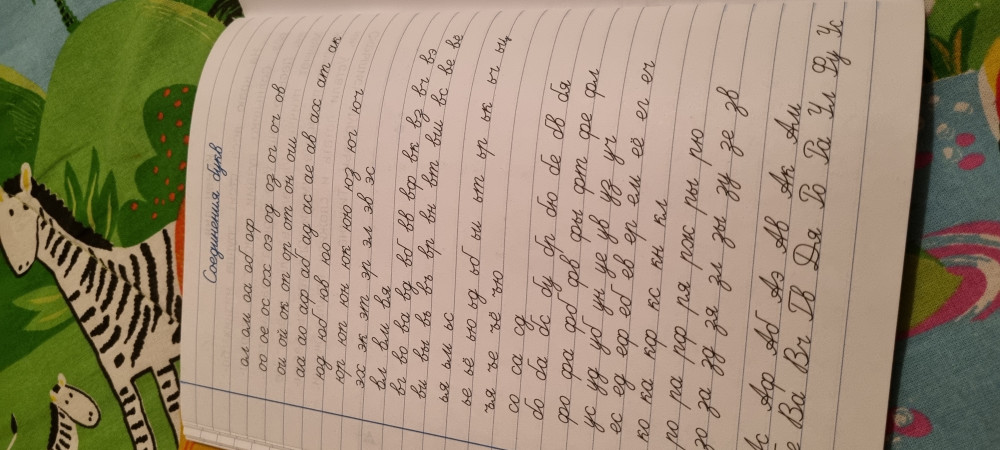 Соединения букв
ол ом оа об оф
оо ое ос ох оэ од оз ог оч ов
ои ой ок оп ор от он ош
аа аю аф аб ад ас ае ав ах ат ак
юд юб юв юо
юп ют юн юк юю юз юг юч
эх эк эт эр эл эв эс
вл вм вя
вг во ва вд вб вв вф вк вз вч вэ
ви вы вь въ вр вн вт вш вс ве вё
ья ьм ьс
ье ьё ью ьд ьб ьи ьт ьр ьк ьч ьц
ъя ъе ъё ъю
со са сд
бо ба бс бу бр бю бе бв бя
фо фа фб фв фы фт фе фл
ус уд уб ун уе ув уз уч
ес ед еф еб ев ер ем её ег еч
ко ка кф кс кн кл
ро ра рф ря рж ры рю
зо за зд зя зл зы зу зе зв
Ас Аф Аб Аэ Ав Ак Ам
Ва Вг Тв Дя То Га Ул Фу Ус